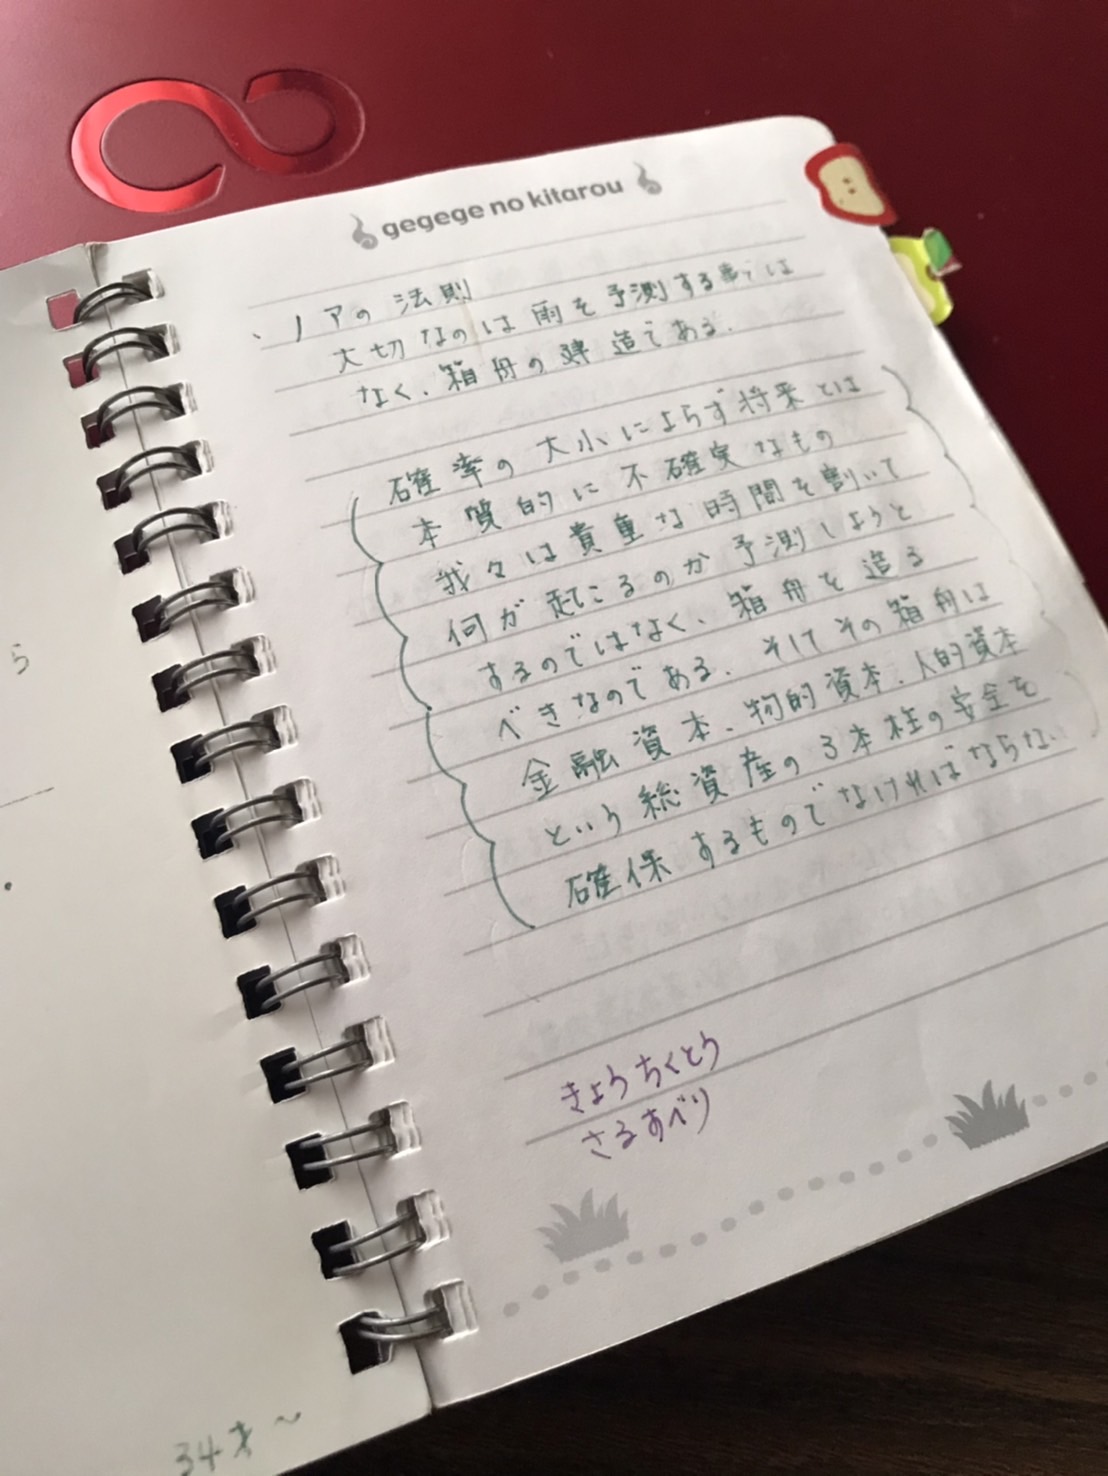 gegege no kitarou
、ノアの法則
大切なのは雨を予測する事では
なく、箱舟の建造である.
確率の大小によらず将来とは
本質的に不確実なもの
我々は貴重な時間を割いて
何が起こるのか予測しようと
するのではなく、箱舟を造る
べきなのである. そしてその箱舟は
金融資本、物的資本、人的資本
という総資産の3本柱の安全を
確保するものでなければならない
きょうちくとう
さるすべり
ら
34才〜